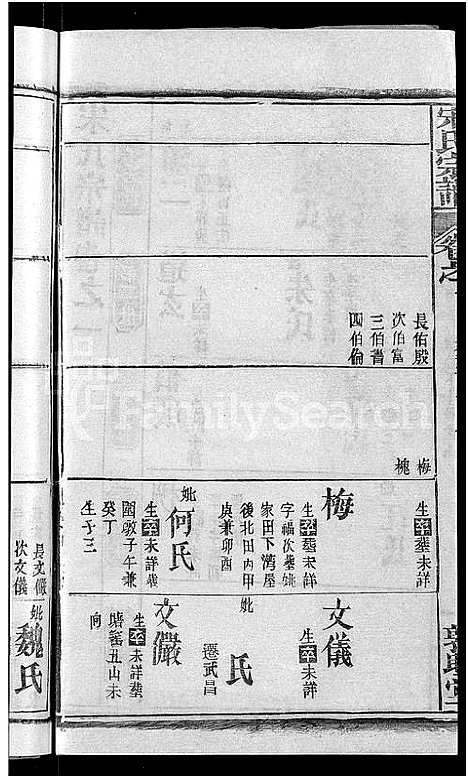 宋氏宗譜
卷之一
長佑殿
次伯富
三伯耆
四伯倫
梅
槐
生卒塟未詳
梅
生卒塟未詳
字福次塟姚
家田下灣屋
後北田内甲
庚兼卯酉
妣何氏
生卒未詳塟
敦子午兼
癸丁
生子三
文儀
生卒未詳
妣
氏
遷武昌
文儼
生卒未詳塟
塘丑山未
向
長文儼
次文儀
妣魏氏
FamilySearch